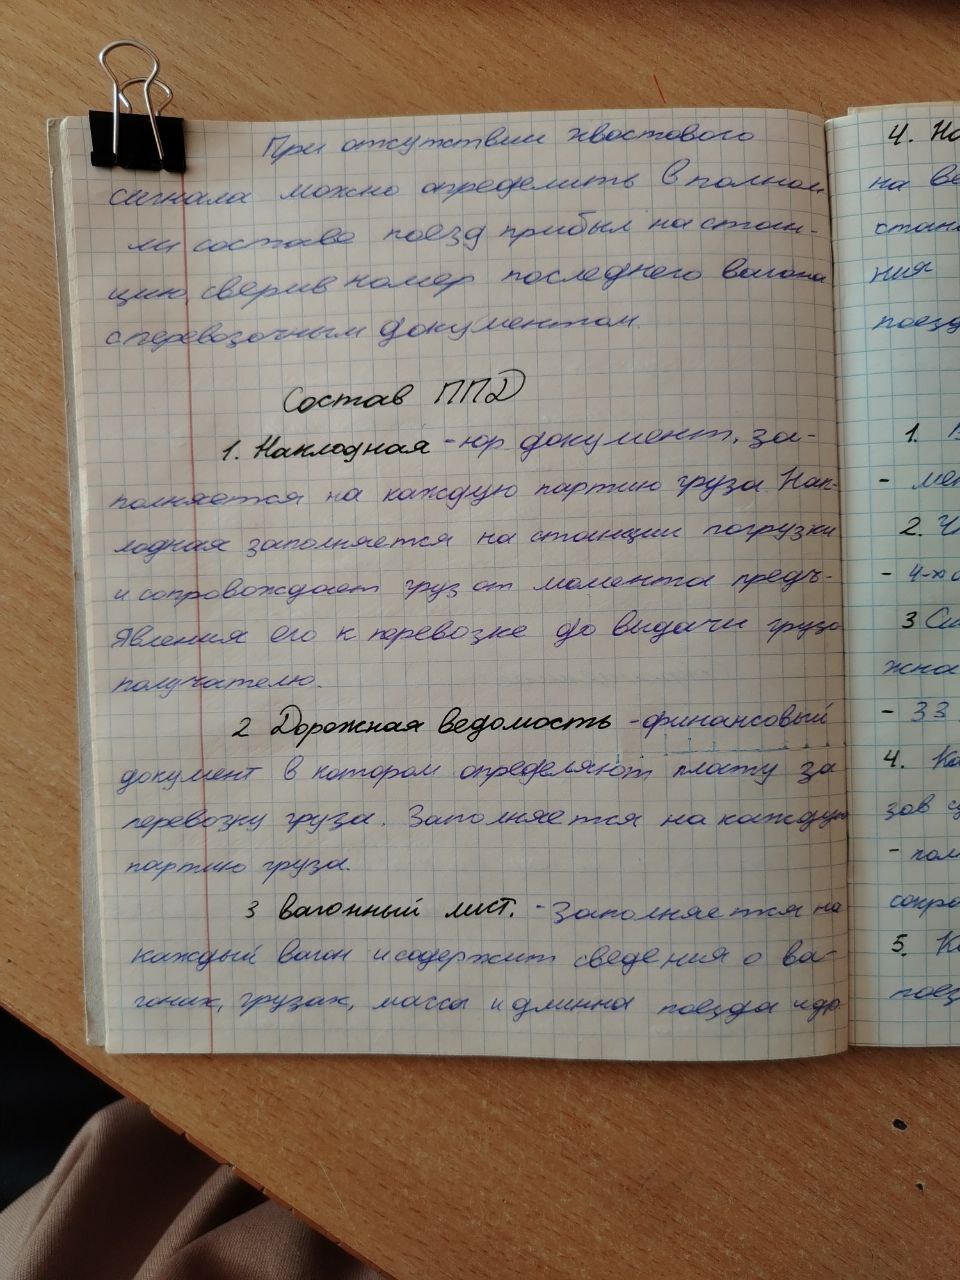 При отсутствии хвостового
сигнала можно определить в полном
ли составе поезд прибыл на стан-
цию, сверив номер последнего вагона
с перевозочным документом.
Состав ППД
1. Накладная - юр. документ, за-
полняется на каждую партию груза. Нак-
ладная заполняется на станции погрузки
и сопровождает груз от момента предъ-
явления его к перевозке до выдачи груза
получателю.
2 Дорожная ведомость - финансовый
документ в котором определяют плату за
перевозку груза. Заполняется на каждую
партию груза.
3 вагонный лист. - Заполняется на
каждый вагон и содержит сведения о ва-
гонах, грузах, массы и длинна поезда и др
4. На
на ве
стан
ния
поезд
1. В
- мен
2. Ч
- 4-х
3 Си
жна
- 33
4. Ка
зов
- пол
сокра
5. Ка
поез